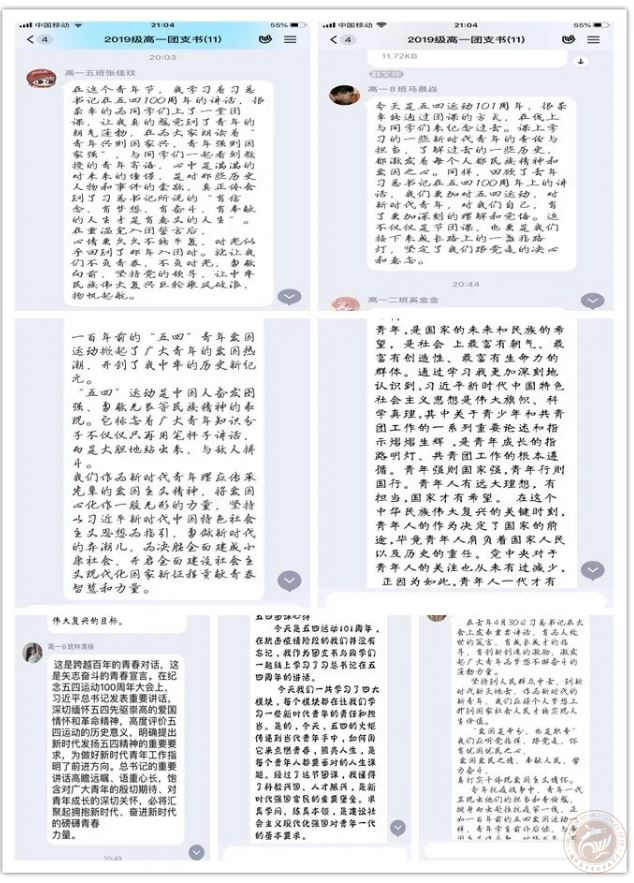 中国移动
21:04
55%
4
2019级高一团支书(11)
20:03
高一五班张佳玟
在这个青年节，我学习着习总
书记在五四100周年的讲话，很
荣幸的为同学们上了一堂团
课，让我真的感觉到了青年的
朝气蓬勃，在为大家朗读着“
青年兴则国家兴，青年强则国
家强”，与同学们一起看刻教
授的青年寄语，心中是满满的
对未来的憧憬，是对那些历史
人物和事件的崇敬，真正体会
到了习总书记所说的“有信
念、有梦想、有奋斗、有奉献
的人生才是有意义的人生”。
在重温完入团誓言后，
心情更久久不能平复，时光似
乎回到了那年入团时。就让我
们不负青春，不负时光，勇敢
向前，坚持党的领导，让中华
民族伟大复兴巨轮乘风破浪，
扬帆起航。
中国移动
21:04
55%
4
2019级高一团支书(11)
11.72KB
群文件
高一8班马晨焱
今天是五四运动101周年，很荣
幸能通过团课的方式，在线上
与同学们来纪念过去。课上学
习的一些新时代青年的责任与
担当，了解过去的一些历史，
都激发着每个人都民族精神和
爱国之心。同样，回顾了去年
习总书记在五四100周年上的讲
话，我们更加对五四运动，对
新时代青年，对我们自己，有
了更加深刻的理解和觉悟。这
不仅仅是节团课，也更是我们
接下来成长路上的一盏指路
灯，坚定了我们跟党走的决心
和意念。
20:44
高一二班奚金金
一百年前的“五四”青年爱国
运动掀起了广大青年的爱国热
潮，开创了我中华的历史新纪
元。
“五四”运动是中国人奋发图
强、勇敢无畏等民族精神的表
现。它标志着广大青年知识分
子不仅仅只再用笔杆子讲话，
而是大胆地站出来，与敌人拼
斗。
我们作为新时代青年理应传承
先辈的爱国主义精神，将爱国
心化作一股无形的力量，坚持
以习近平新时代中国特色社会
主义思想为指引，勇做新时代
的弄潮儿，为决胜全面建成小
康社会、开启全面建设社会主
义现代化国家新征程贡献青春
智慧和力量。
青年，是国家的未来和民族的希
望， 是社会 上最富有朝气、最
富有创造性、 最富有生命力的
群体。通过学习我更加深刻地
认识到，习近平新时代中国特色
社会主义思想是伟大旗帜、科
学真理，其中关于青少年和共青
团工作的一系列重要论述和指
示熠熠生辉 ,是青年成长的指
路明灯、共青团工作的根本遵
循。青年强则国家强，青年行则
国行。青年人有远大理想， 有
担当，国家才有希望。 在这个
中华民族伟大复兴的关键时刻，
青年人的作为决定了国家的前
途，毕竟青年人肩负着国家人民
以及历史的重任。党中央对于
青年人的关注也从未有过减少，
正因为如此，青年人一代才有
伟大复兴的目标。
高一6班林清扬
这是跨越百年的青春对话，这
是矢志奋斗的青春宣言。在纪
念五四运动100周年大会上，
习近平总书记发表重要讲话，
深切缅怀五四先驱崇高的爱国
情怀和革命精神，高度评价五
四运动的历史意义，明确提出
新时代发扬五四精神的重要要
求，为做好新时代青年工作指
明了前进方向。总书记的重要
讲话高瞻远瞩、语重心长，饱
含对广大青年的殷切期待、对
青年成长的深切关怀，必将汇
聚起拥抱新时代、奋进新时代
的磅礴青春
力量。
20:49
今天是五四运动101周年，
在抗击疫情阶段的我们并没有
忘记，我作为团支书与同学们
一起线上学习了习总书记在五
四周年的讲话。
今天我们一共学习了四大
模块，每个模块都在让我们学
习一些新时代青年的责任和担
当。是的，今天，五四的火炬
传递到当代青年手中，如何用
它来点燃青春，照亮人生，是
每个青年人都要面对的人生课
题。经过了这节团课，我懂得
了科教兴国、人才振兴，是新
时代强国富民的重要堡垒。求
真学问、练真本领，是建设社
会主义现代化强国对青年一代
的基本要求。
在去年4月30日习总书记在大
会上发表重要讲话，有为人处
世的箴言、有成长成才的指
导、有创新创造的激励，激发
起广大青年为梦想不懈奋斗的
蓬勃力量。
坚持到人民群众中去，到新
时代新天地去，作为新时代的
新青年，我们应将个人梦想上
升到国家社会人民才能实现人
生价值。
“爱国是本分，也是职责”
我们应听党指挥，跟党走，怀
有忧国忧民之心、
爱国爱民之情，奉献人民、努
力奋斗，
真打实干体现爱国主义情怀。
青年抗疫战争中，青年一代
呈现出他们的担当和责任感，
挺身而出赴往抗疫第一线，正
如一百年前的五四爱国运动一
样，青年学生前仆后继，与帝